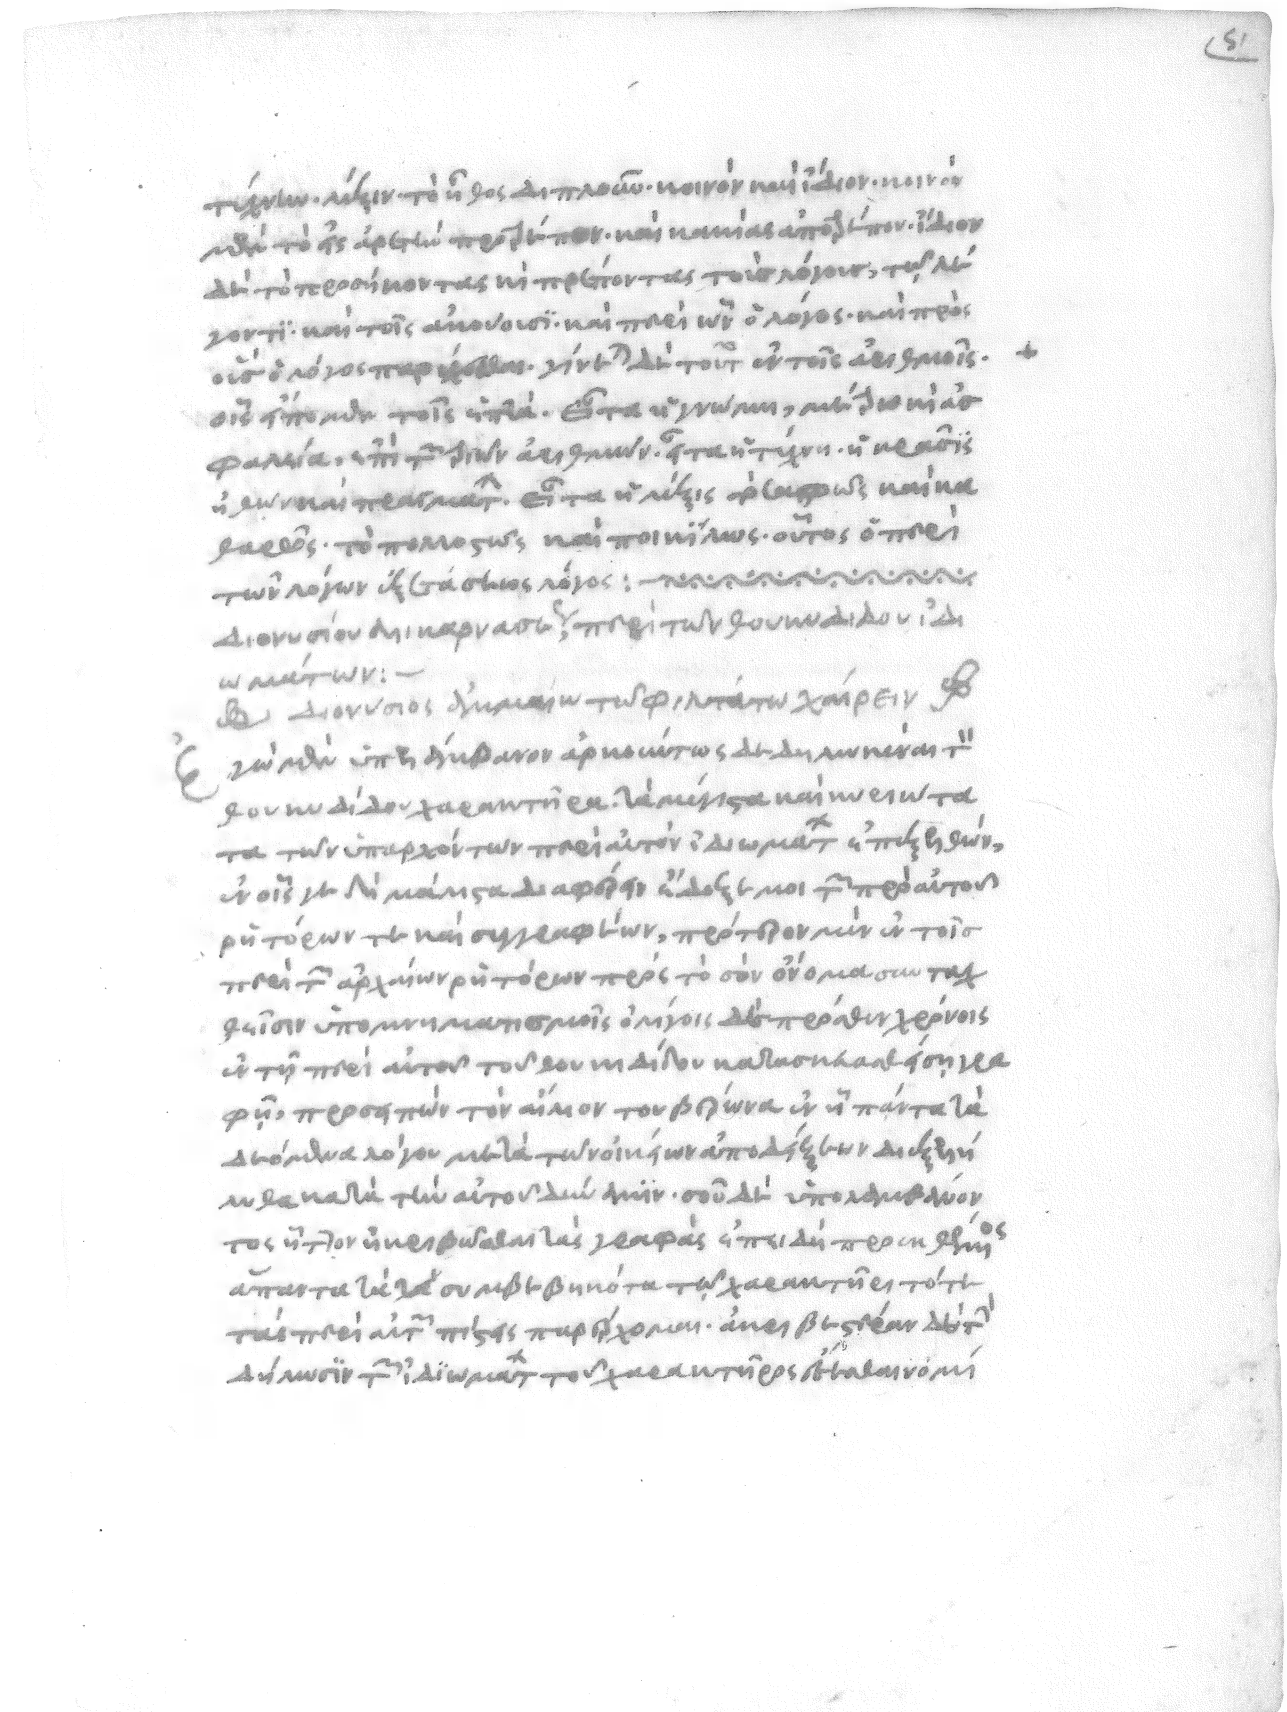 51
τέχνην· λέξιν· τὸ ἦθος διπλοῦν· κοινὸν καὶ ἴδιον· κοινὸν
μὲν τὸ εἰς ἀρετὴν προτρέπον· καὶ κακίας ἀποτρέπον· ἴδιον
δὲ τὸ προσήκοντας κ πρέποντας τοὺς λόγους, τῷ λέ
γοντι· καὶ τοῖς ἀκούουσι· καὶ περὶ ὧν ὁ λόγος· καὶ πρὸς
οὓς ὁ λόγος παρέχεσθαι· γίνεται δὲ τοῦτ ἐν τοῖς ἀριθμοῖς·
οἷς εἵπομεν τοῖς ἑπτά· εἶτα ἡ γνώμη, κ ἀσ
φαλεία, ἐπὶ τῶν τριῶν ἀριθμῶν· εἶτα ἡ τέχνη· ἡ κρᾶσις
ἠθῶν καὶ πραγμάτ· εἶτα ἡ λέξις σαφῶς καὶ κα
θαρῶς· τὸ πολλαχῶς καὶ ποικίλως· οὗτος ὁ περὶ
τῶν λόγων ἐξετάσεως λόγος:
Διονυσίου ἁλικαρνασέως, περὶ τῶν θουκυδίδου ἰδι
ωμάτων:
Διονύσιος ἀμμαίω τῷ φιλτάτω χαίρειν
Ἐγὼ μὲν ὑπελάμβανον ἀρκούντως δεδηλωκέναι τὸν
θουκυδίδου χαρακτῆρα· τὰ μέγιστα καὶ κυριώτα
τα τῶν ὑπαρχόντων περὶ αὐτὸν ἰδιωμάτ ἐπεξελθών,
ἐν οἷς γε δὴ μάλιστα διαφέρειν ἔδοξέ μοι τῶν πρὸ αὐτοῦ
ῥητόρων τε καὶ συγγραφέων, πρότερον μὲν ἐν τοῖς
περὶ τῶν ἀρχαίων ῥητόρων πρὸς τὸ σὸν ὄνομα συνταχ
θεῖσιν ὑπομνηματισμοῖς ὀλίγοις δὲ πρόσθεν χρόνοις
ἐν τῇ περὶ αὐτοῦ τοῦ θουκυδίδου κατασκευασθείσῃ γρα
φῇ, προσειπὼν τὸν αἴλιον τουβέρωνα ἐν ᾗ πάντα τὰ
δεόμενα λόγου μετὰ τῶν οἰκείων ἀποδείξεων διεξελή
λυθα κατὰ τὴν αὐτοῦ δύναμιν· σοῦ δὲ ὑπολαμβάνον
τος ἧττον ἠκριβῶσθαι τὰς γραφὰς ἐπειδὴ προεκθέμενος
ἅπαντα τὰ συμβεβηκότα τῷ χαρακτῆρι τότε
τὰς περὶ αὐτῶν πίστεις παρέχομαι· ἀκριβεστέραν δὲ τὴν
δήλωσιν τῶν ἰδιωμάτ τοῦ χαρακτῆρος ἔσεσθαι νομί